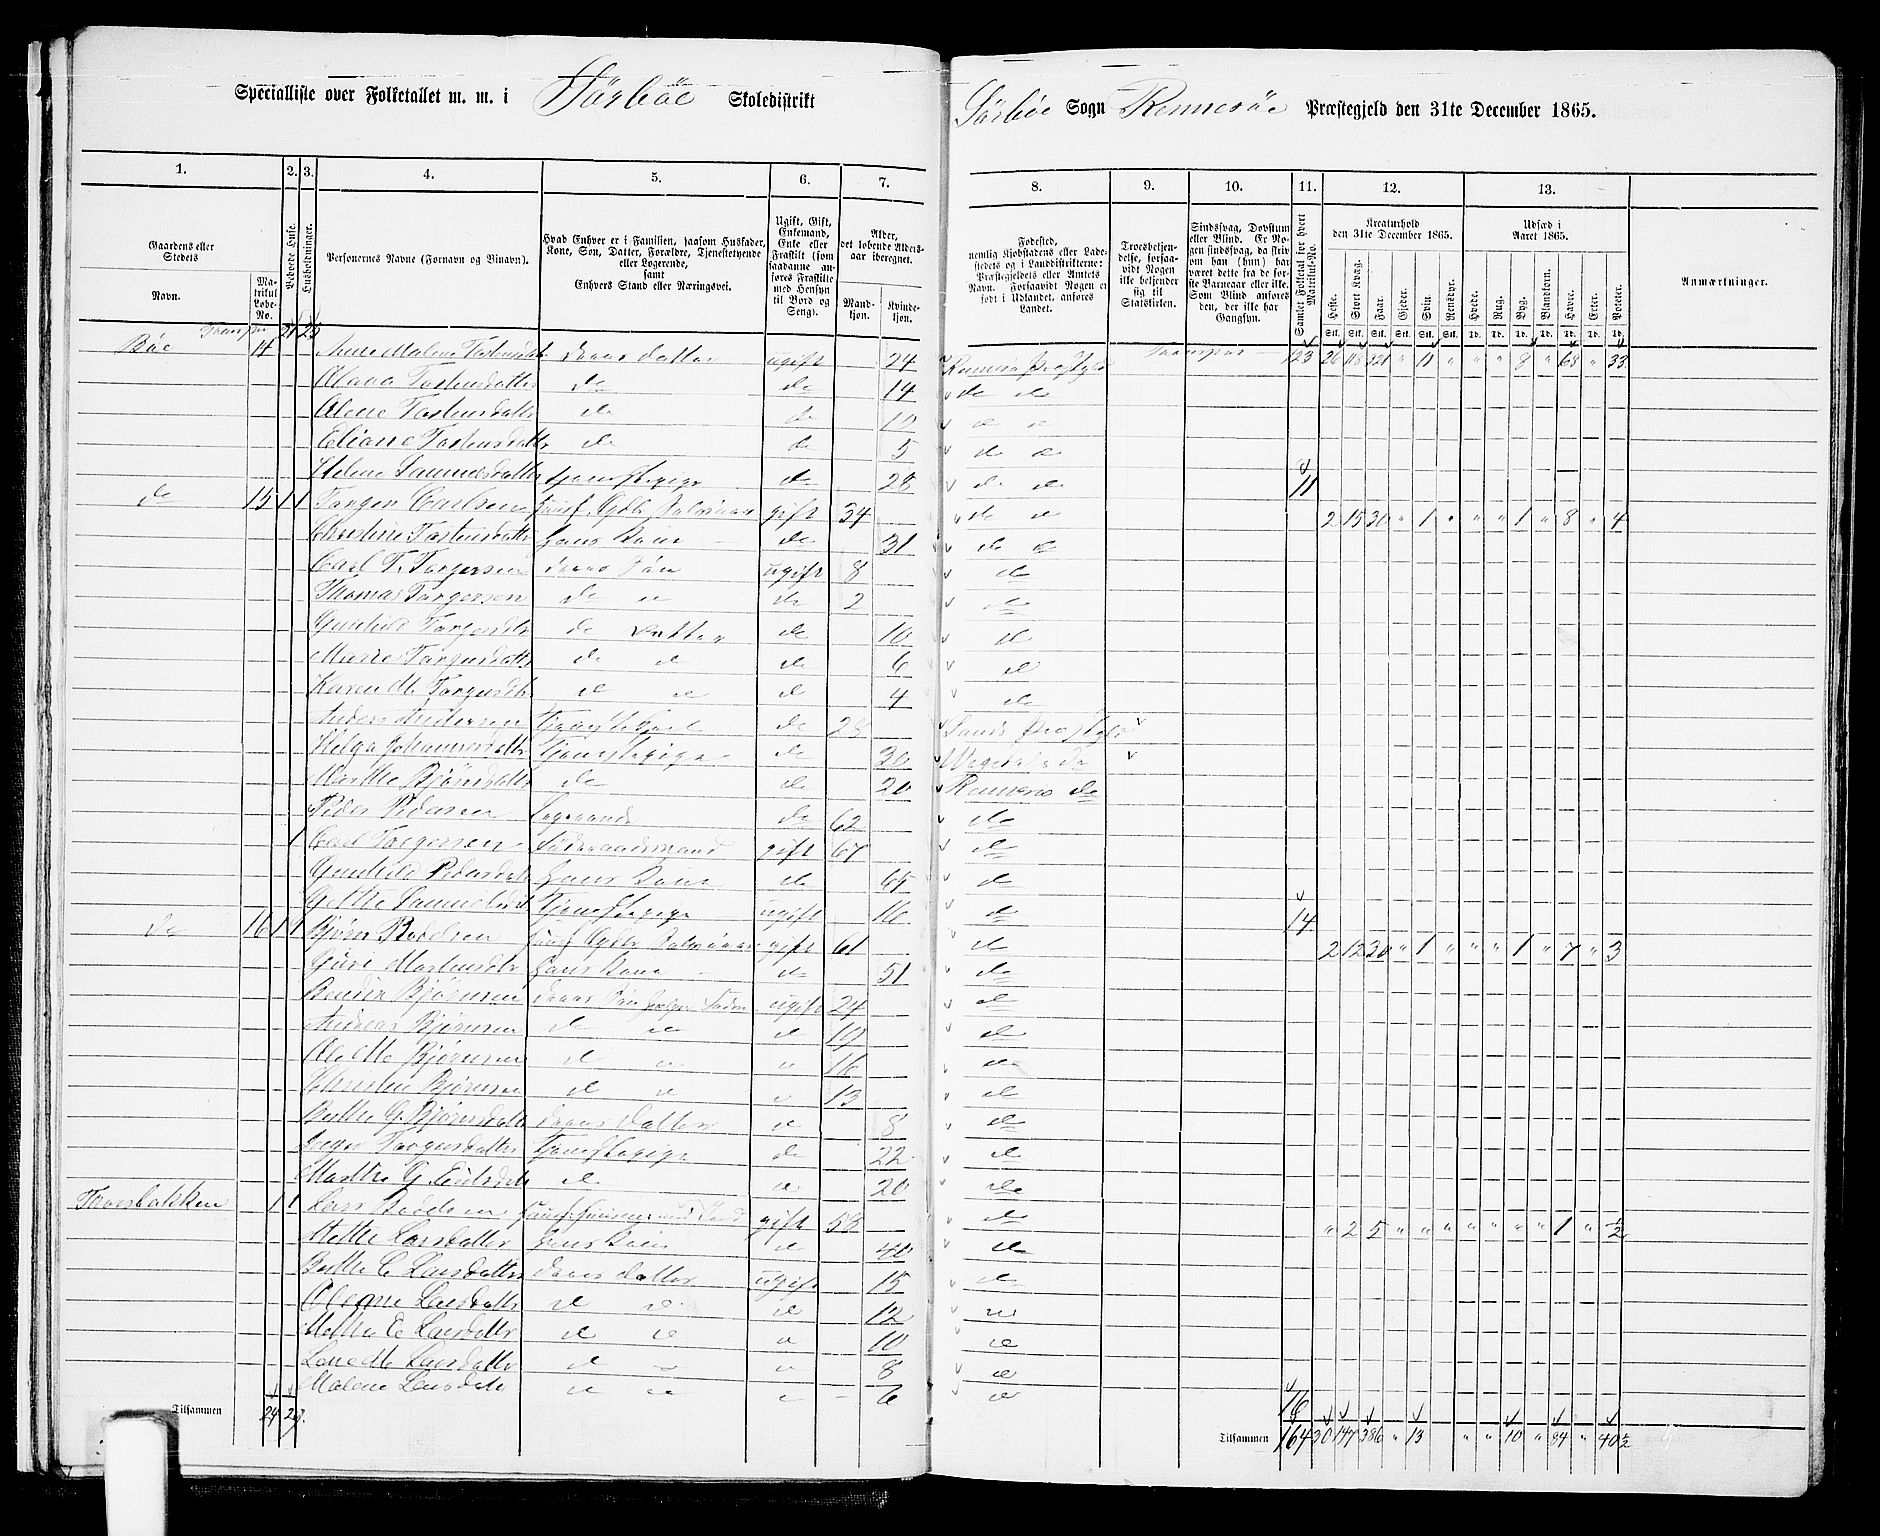 Specialliste over Folketallet m. m. i Sørbøe Skoledistrikt
Sørbøe Sogn Rennesøe Præstegjeld den 31te December 1865.
1. 2. 3. 4. 5. 6. 7.
8. 9. 10. 11. 12. 13.
Gaardens eller Stedets
Navn.
Matrikul Løbe-No.
Beboede Huse.
Husholdninger.
Personernes Navne (Fornavn og Tilnavn).
Hvad Enhver er i Familien, saasom Husfader, Kone, Søn, Datter, Forældre, Tjenestetyende eller Logerende, samt Enhvers Stand eller Næringsvei.
Ugift, Gift, Enkemand, Enke eller Fraskilt (som saadanne anføres Fraskilte med Hensyn til Bord og Seng).
Alder, det løbende Aldersaar iberegnet.
Mandkjøn. Kvindekjøn.
Fødested, nemlig Kjøbstadens eller Ladestedets og i Landdistrikterne: Præstegjeldets eller Amtets Navn. Forsaavidt Nogen er født i Udlandet, anføres Landet.
Troesbekjendelse, forsaavidt Nogen ikke bekjender sig til Statskirken.
Sindssvag, Døvstum eller Blind. Er Nogen sindssvag, da skriv om han (hun) har været dette fra de første Barneaar eller ikke. Som Blind anføres den, der ikke har Gangsyn.
Samlet Folketal for hvert Matrikul-No.
Kreaturhold den 31te December 1865.
Heste. Stort Kvæg. Faar. Gjeder. Sviin. Rensdyr.
Udsæd i Aaret 1865.
Hvede. Rug. Byg. Blandkorn. Havre. Erter. Poteter.
Anmærkninger.
Stk. Stk. Stk. Stk. Stk. Stk. Td. Td. Td. Td. Td. Td. Td.
Bøe 14 Anne Malene Torstensdatter deres Datter ugift 24 Rennesø Præstgjld Transport 123 26 118 321 " 11 " " " 8 " 68 " 33
Torstensdatter do do 14 do do
Torstensdatter do do 12 do do
Eliane Torstensdatter do do 5 do do
Helene Samuelsdatter Tjenestepige do 28 do do 11
do 15 1 1 Torger Carlsen Huusf. Gdbr. Selveier gift 34 do do 2 15 30 " 1 " " " 1 " 8 " 4
Christine Torstensdatter Hans Kone do 31 do do
Carl T. Torgersen deres Søn ugift 8 do
Thomas Torgersen do do do 2 do
Gunhild Torgersdtr do Datter do 10 do
Marie Torgersdatter do do do 6 do
Karen M. Torgersdtr do do do 4 do
Anders Andersen Tjenestekarl do 28 Sands Præstgjld
Helga Johannesdatter Tjenestepige do 30 do
Marthe Bjørnsdatter do do 20 Rennesø do
Peder Pedersen do 62 do
1 Carl Torgersen Føderaadsmand gift 67 do
Gunhild Pedersdatter Hans Kone do 65 do
Samuelsdtr Tjenestepige ugift 16 do 14
do 16 1 1 Bjørn Huusf. Gdbr. Selveier gift 61 do 2 12 30 " 1 " " " 1 " 7 " 3
Guri Hans Kone do 51 do
Bjørnsen deres Søn hjelper Fader ugift 24 do
Andreas Bjørnsen do do do 19 do
Ole M. Bjørnsen do do do 16 do
Christen Bjørnsen do do do 13 do
Berthe G. Bjørnsdatter deres Datter do 8 do
Torgersdatter Tjenestepige do 22 do
Marthe G. do do 20 do
1 1 Lars gift 58 do " 2 5 " " " " " " " 1 " ½
Mette Larsdatter Hans Kone do 40 do
Berthe C. Larsdatter deres Datter ugift 15 do
Larsdatter do do do 12 do
Larsdatter do do do 10 do
Lene M. Larsdatter do do do 8 do
Malene Larsdatter do do do 6 do 16
Tilsammen 24 29.
Tilsammen 164 30 147 386 " 13 " " 10 " 84 " 40½